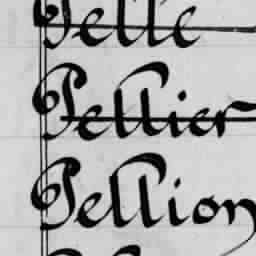 Pelle
Pellier
Pellion